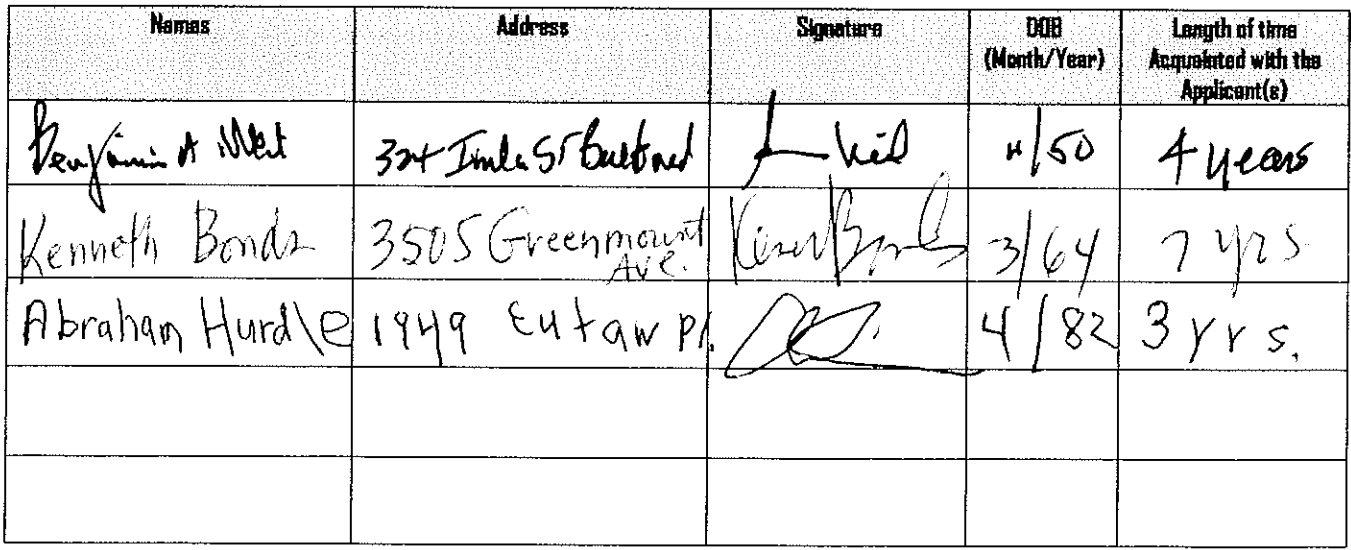 Names Address Signature DOB (Month/Year) Length of time Acquainted with the Applicant(s)
Benjamin A 324 Imla St 4 years
Kenneth Bonds 3505 Greenmount Ave. 3/64 7 yrs
Abraham Hurdle 1949 Eutaw Pl. 4/82 3 yrs.